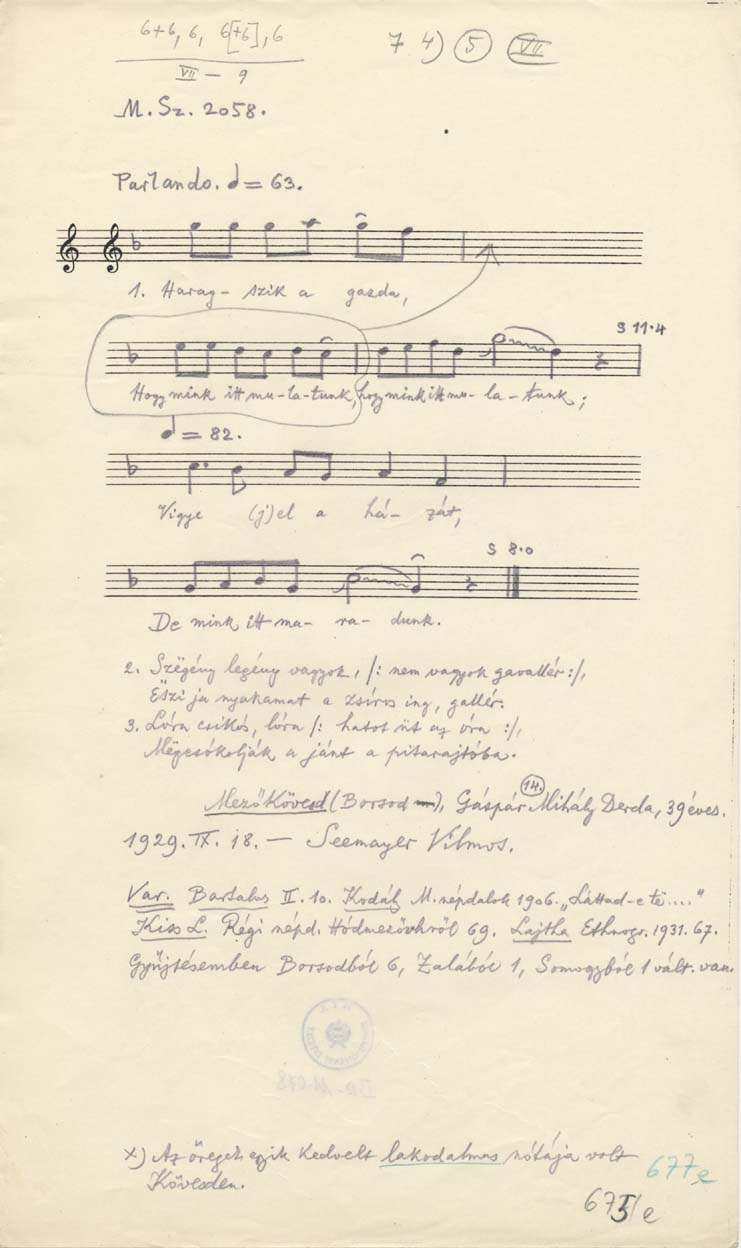 6+6, 6, 6[+6], 6
VII – 9
7 4) 5 VII.
M. Sz. 2058.
Parlando. = 63.
1. Harag- szik a gazda,
S 11·4
Hogy mink itt mu-la-tunk, hogy mink itt mu- la- tunk;
= 82.
Vigye (j)el a há- zát,
S 8·0
De mink itt ma- ra- dunk.
2. Szegény legény vagyok, /: nem vagyok gavallér :/,
Eszi ja nyakamat a zsíros ing, gallér.
3. Lóra csikós, lóra /: hatot üt az óra :/,
Mëgcsókolják a jánt a pitarajtóba.
14.
Mezőkövesd (Borsod), Gáspár Mihály Derda, 39 éves.
1929. IX. 18. — Seemayer Vilmos.
Var. Bartalus II. 10. Kodály M. népdalok 1906. „Láttad-e të...."
Kiss L. Régi népd. Hódmezővhről 69. Lajtha Ethnogr. 1931. 67.
Gyűjtésemben Borsodból 6, Zalából 1, Somogyból 1 vált. van.
x) Az öregek egyik kedvelt lakodalmas nótája volt
Kövesden.
677e
675/e